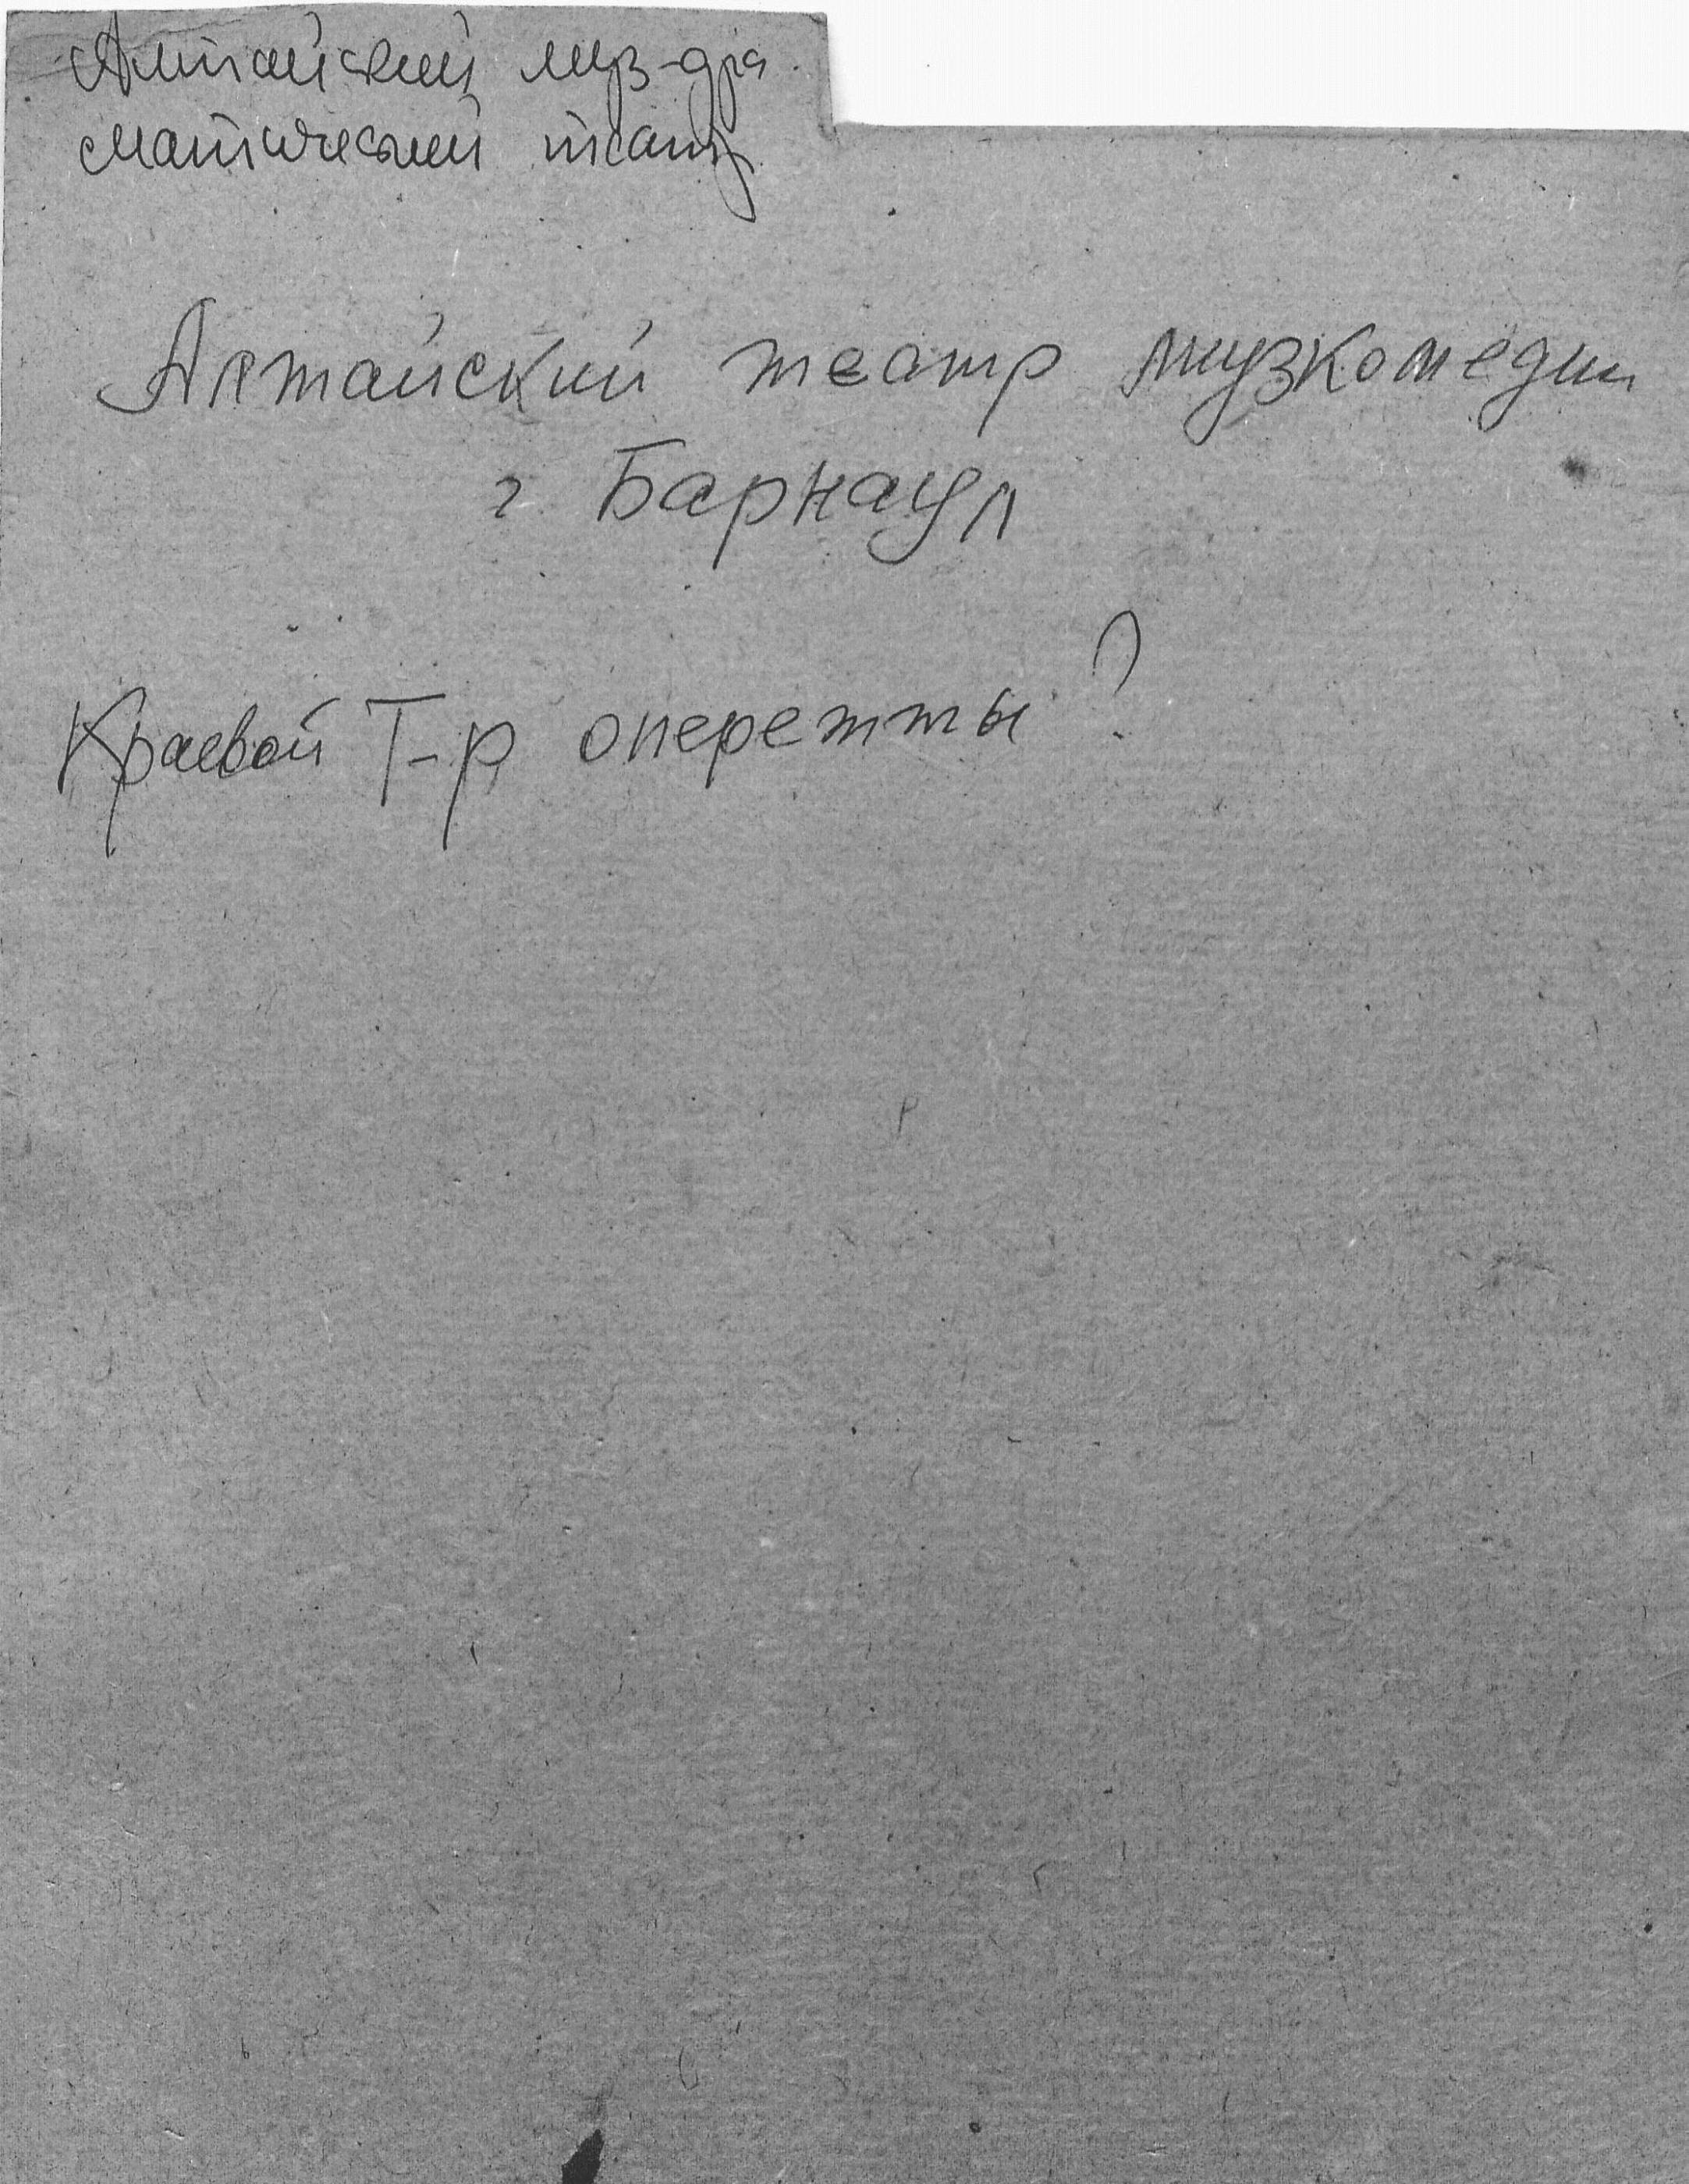 Алтайский муз-дра
матический театр
Алтайский театр музкомедии
г. Барнаул
Краевой Т-р оперетты?